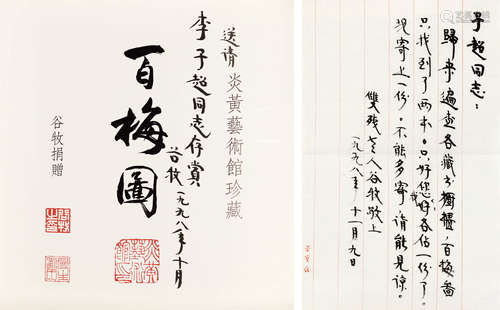 送请炎黃藝術館珍藏
李子超同志存赏
谷牧 一九九八年十月
百梅圖
谷牧捐贈
子超同志:
歸来遍查各藏书橱櫃,百梅圖
只找到了两本。只好您我各佔一份了。
现寄上一份。不能多寄请能见谅。
雙残老人谷牧敬上
一九九八年十一月九日